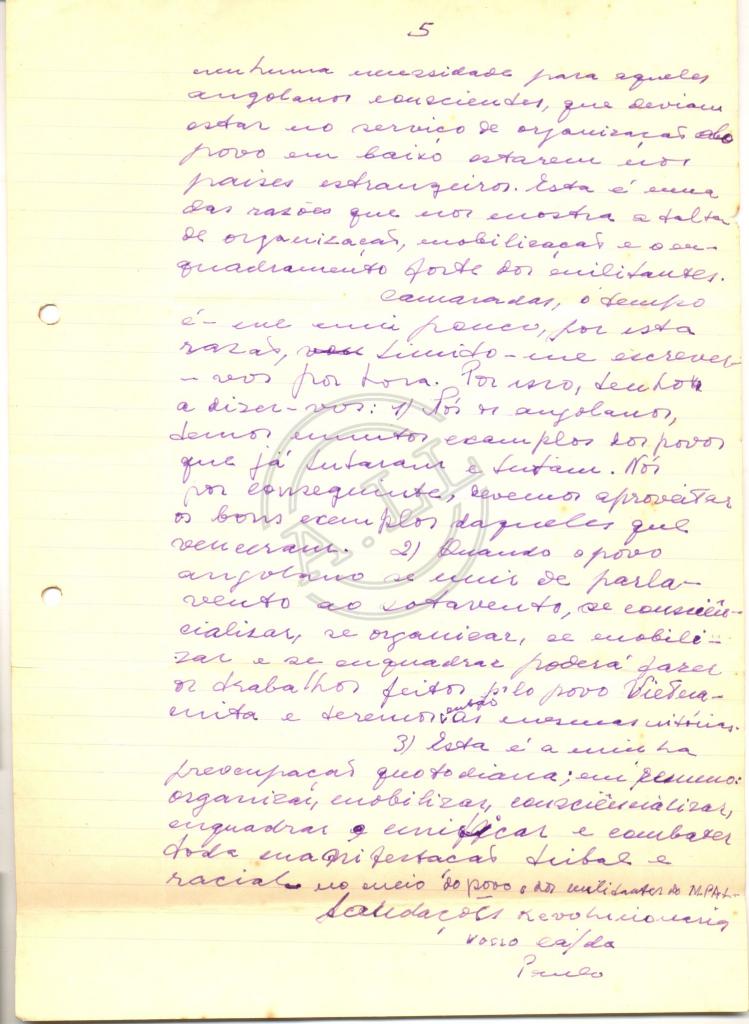 5
nenhuma necessidade para aqueles
angolanos conscientes, que deviam
estar no serviço de organização do
povo em baixo estarem nos
países estrangeiros. Esta é uma
das razões que nos mostra a falta
de organização, mobilização e o en-
quadramento forte dos militantes.
Camaradas, o tempo
é-me mui pouco, por esta
razão, limito-me escrever-
-vos por hora. Por isso, tenho
a dizer-vos: 1) Nós os angolanos,
temos muitos exemplos dos povos
que já lutaram e lutam. Nós
por conseguinte, devemos aproveitar
os bons exemplos daqueles que
venceram. 2) Quando o povo
angolano se unir de parla-
vento ao sotavento, se consciên-
cializar, se organizar, se mobili-
zar e se enquadrar poderá fazer
os trabalhos feitos pelo povo Vietna-
mita e teremos então as mesmas vitórias.
3) Esta é a minha
preocupação quotidiana; em resumo:
organizar, mobilizar, consciêncializar,
enquadrar e unificar e combater
toda manifestação tribal e
racial no meio do povo e dos militantes do M.P.A.L-
Saudações Revolucionaria
Vosso cá/da
Paulo
A.LL